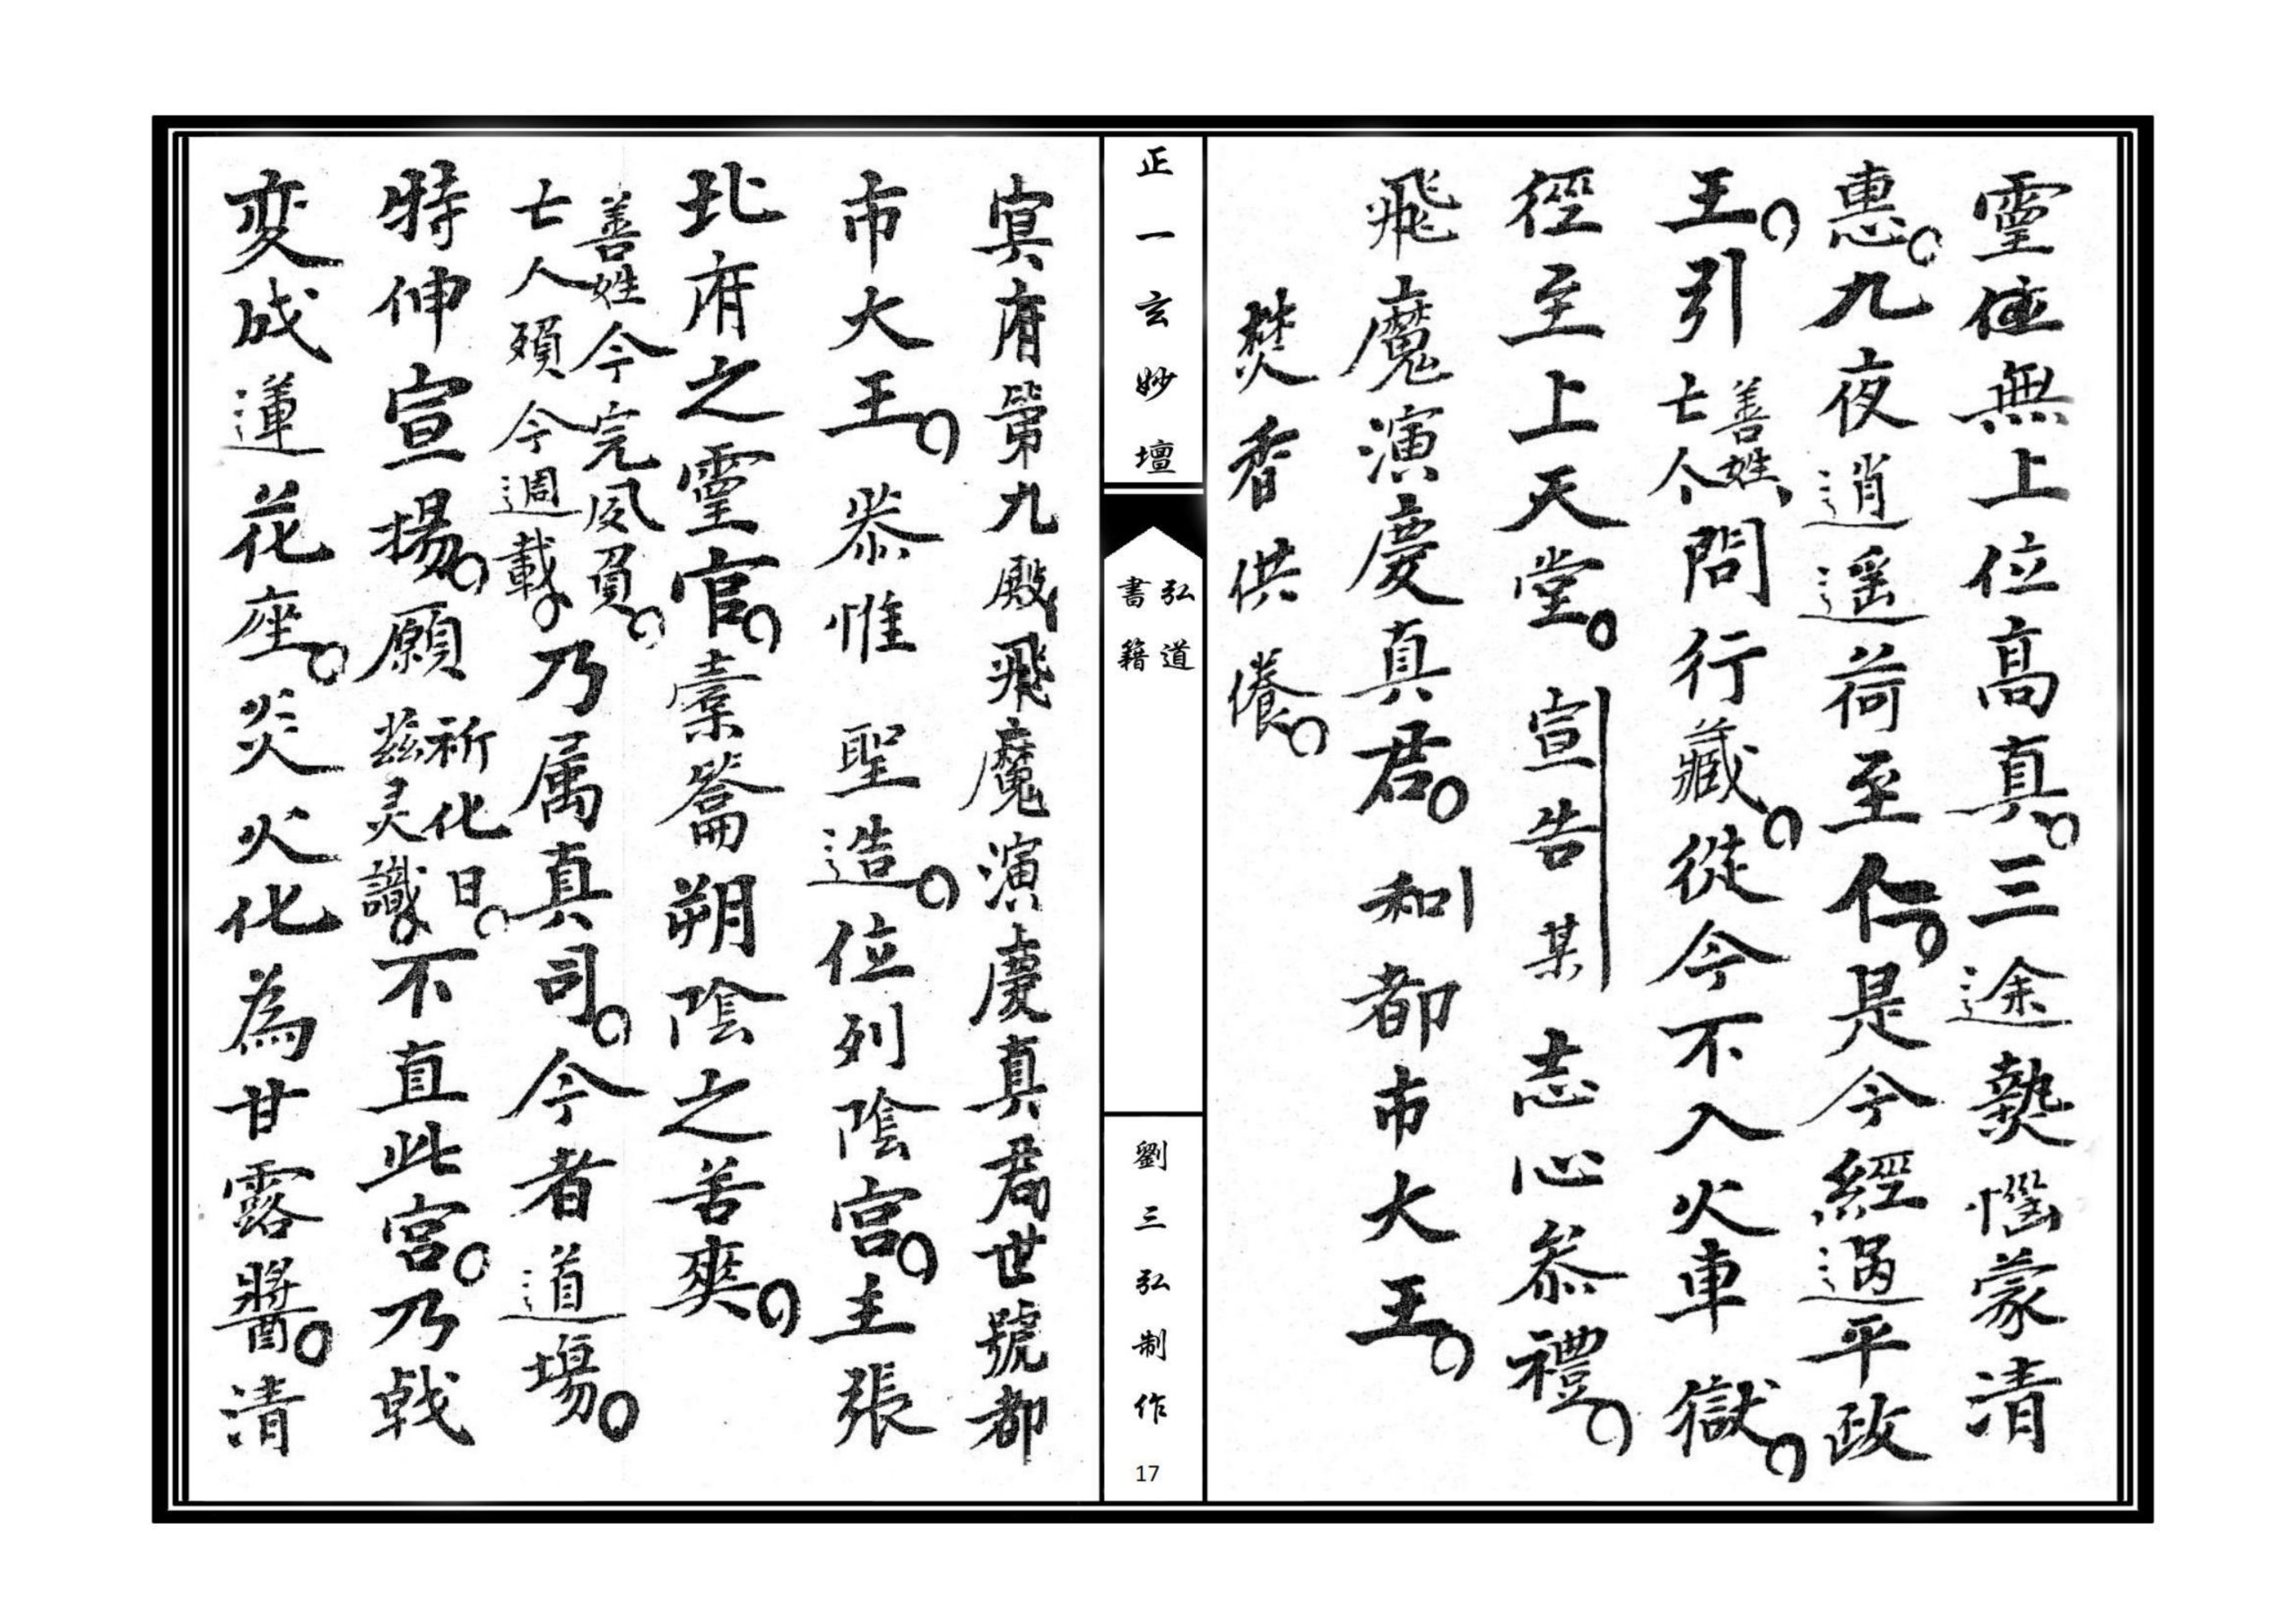 靈位無上位高真。三途熱惱蒙清
惠。九夜逍遥荷至仁。是今經過平政
王。引善姓亡人問行藏。從今不入火車獄。
徑至上天堂。宣告某 志心叅禮。
飛魔演慶真君。和 都市大王。
焚香供養。
正一玄妙壇
弘道
書籍
劉三弘制作
17
冥府第九殿飛魔演慶真君世號都
市大王。恭惟 聖造。位列陰宮。主張
北府之靈官。橐籥朔陰之善爽。
善姓今完夙負。
亡人預今週載。乃属真司。今者道場。
特伸宣揚。願祈化日。
茲灵識。不直此宮。乃戟
変成蓮花座。炎火化為甘露醬。清